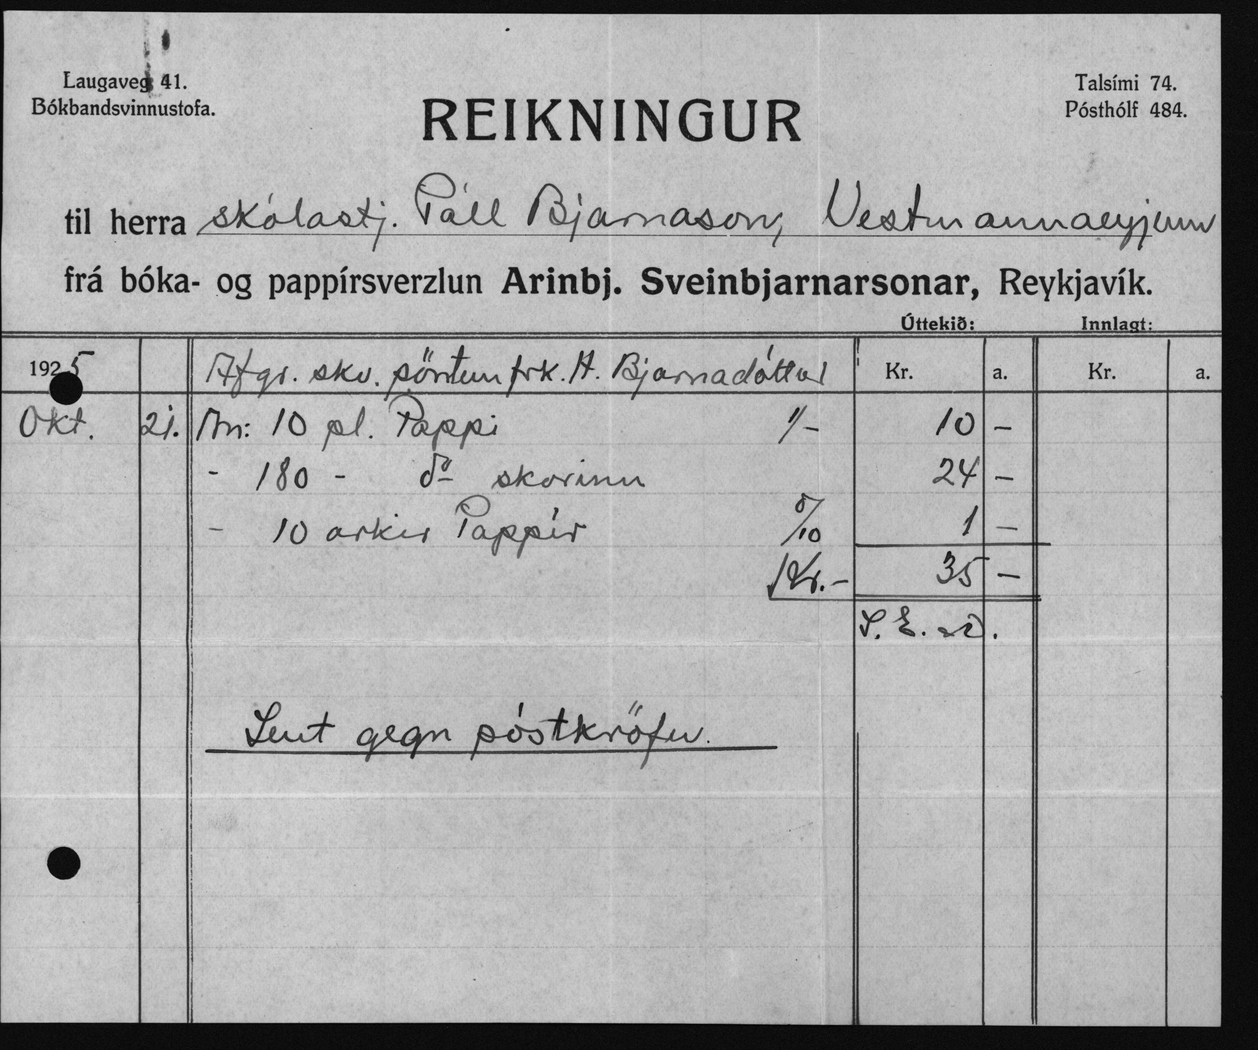 Laugaveg 41.
Bókbandsvinnustofa.
Talsími 74.
Pósthólf 484.
REIKNINGUR
til herra skólastj. Páll Bjarnason, Vestmannaeyjum
frá bóka- og pappírsverzlun Arinbj. Sveinbjarnarsonar, Reykjavík.
Úttekið: Innlagt:
1925 Afgr. skv. pöntun frk. H. Bjarnadóttur Kr. a. Kr. a.
Okt. 21. An: 10 pl. Pappi 1/- 10 -
- 180 - do skorinn 24 -
- 10 arkir Pappír 0/10 1 -
Kr. - 35 -
S. E. &O.
Sent gegn póstkröfu.